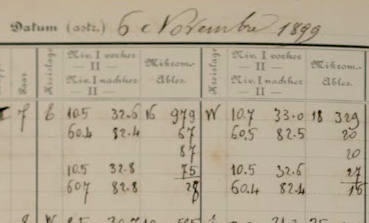 Datum (astr.) 6 Novembre 1899
Paar Kreislage Niv. I vorher — II — Niv. I nachher — II — Mikrom.-Ables. Kreislage Niv. I vorher — II — Niv. I nachher — II — Mikrom.-Ables.
I 7 E 10.5 32.6 16 979 W 10.7 33.0 18 329
60.4 82.4 67 60.5 82.5 20
87 20
10.5 32.8 75 10.5 32.6 27
60.7 82.8 28 60.4 82.4 15